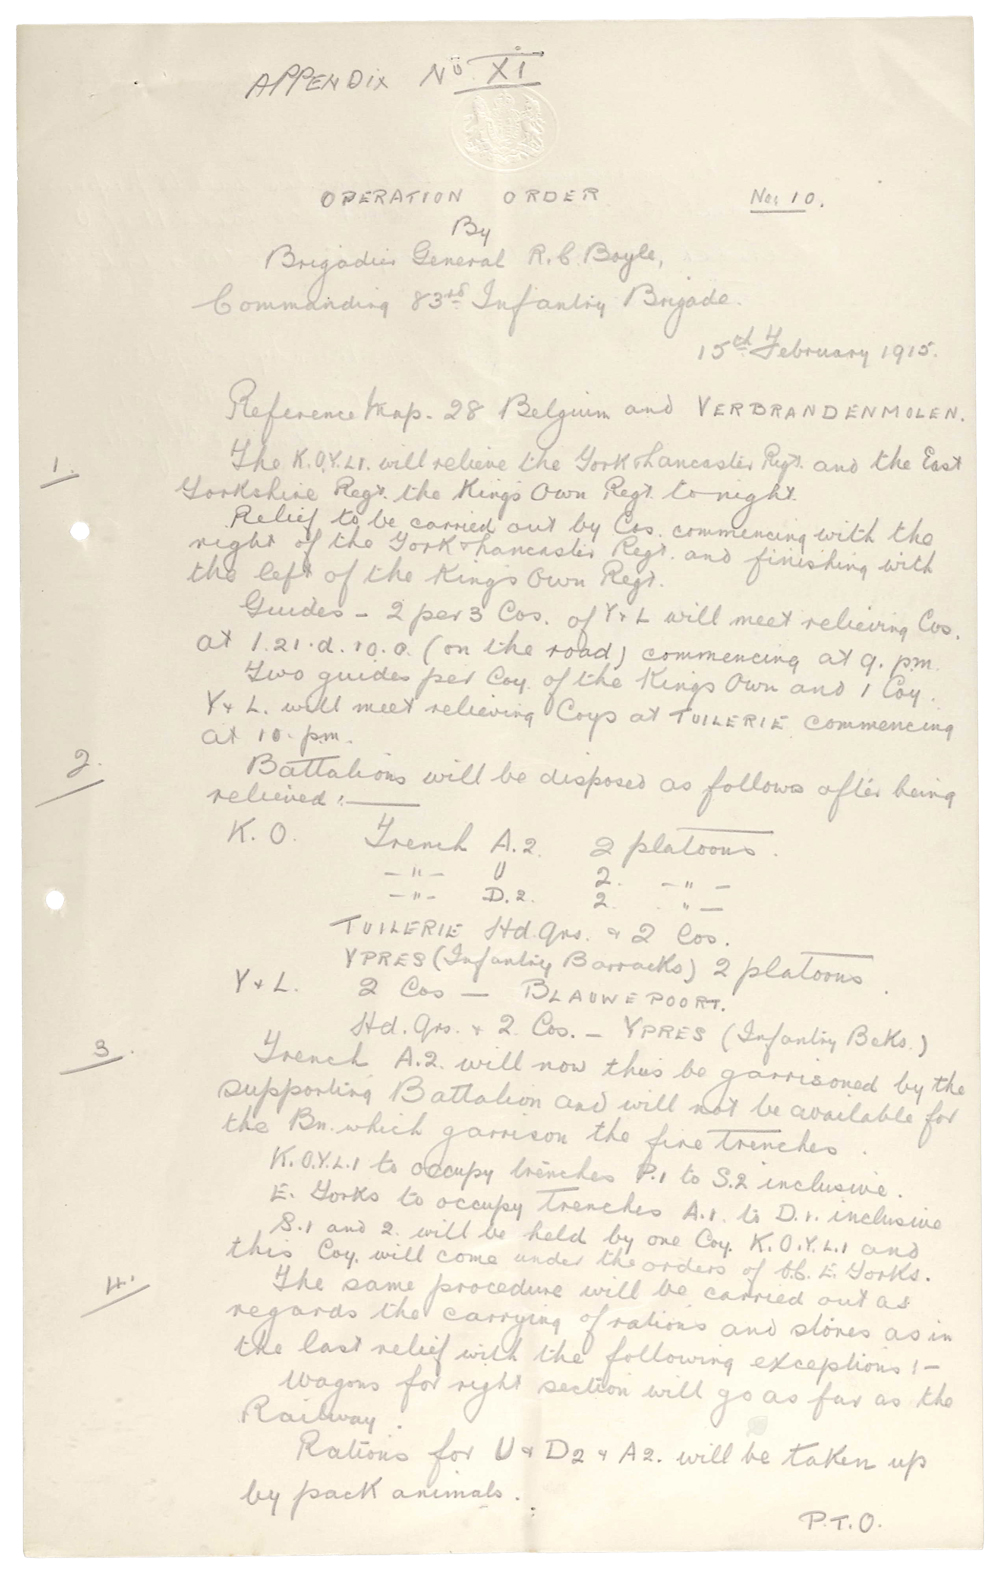 APPENDIX No XI
OPERATION ORDER No. 10.
By
Brigadier General R.C. Boyle,
Commanding 83rd Infantry Brigade.
15th February 1915.
Reference Map. 28 Belgium and VERBRANDENMOLEN.
1. The K.O.Y.L.I. will relieve the York & Lancaster Regt. and the East
Yorkshire Regt. the King's Own Regt. to-night.
Relief to be carried out by Cos. commencing with the
right of the York & Lancaster Regt. and finishing with
the left of the King's Own Regt.
Guides – 2 per 3 Cos. of Y & L will meet relieving Cos.
at I.21.d.10.0. (on the road) commencing at 9. pm.
Two guides per Coy. of the King's Own and 1 Coy.
Y & L. will meet relieving Coys at TUILERIE commencing
at 10. pm.
2. Battalions will be disposed as follows after being
relieved :—
K. O. Trench A.2. 2 platoons.
— " — U 2. — " —
— " — D.2. 2. " —
TUILERIE Hd. Qrs. & 2 Cos.
YPRES (Infantry Barracks) 2 platoons.
Y & L. 2 Cos — BLAUWEPOORT.
Hd. Qrs. & 2. Cos. – YPRES (Infantry Bcks.)
3. Trench A.2. will now thus be garrisoned by the
supporting Battalion and will not be available for
the Bn. which garrison the fire trenches.
K.O.Y.L.I to occupy trenches P.1 to S.2 inclusive.
E. Yorks to occupy trenches A.1. to D.1. inclusive
S.1 and 2. will be held by one Coy. K.O.Y.L.I and
this Coy. will come under the orders of O.C. E. Yorks.
4. The same procedure will be carried out as
regards the carrying of rations and stores as in
the last relief with the following exceptions :–
Wagons for right section will go as far as the
Railway.
Rations for U & D2 & A2. will be taken up
by pack animals.
P.T.O.